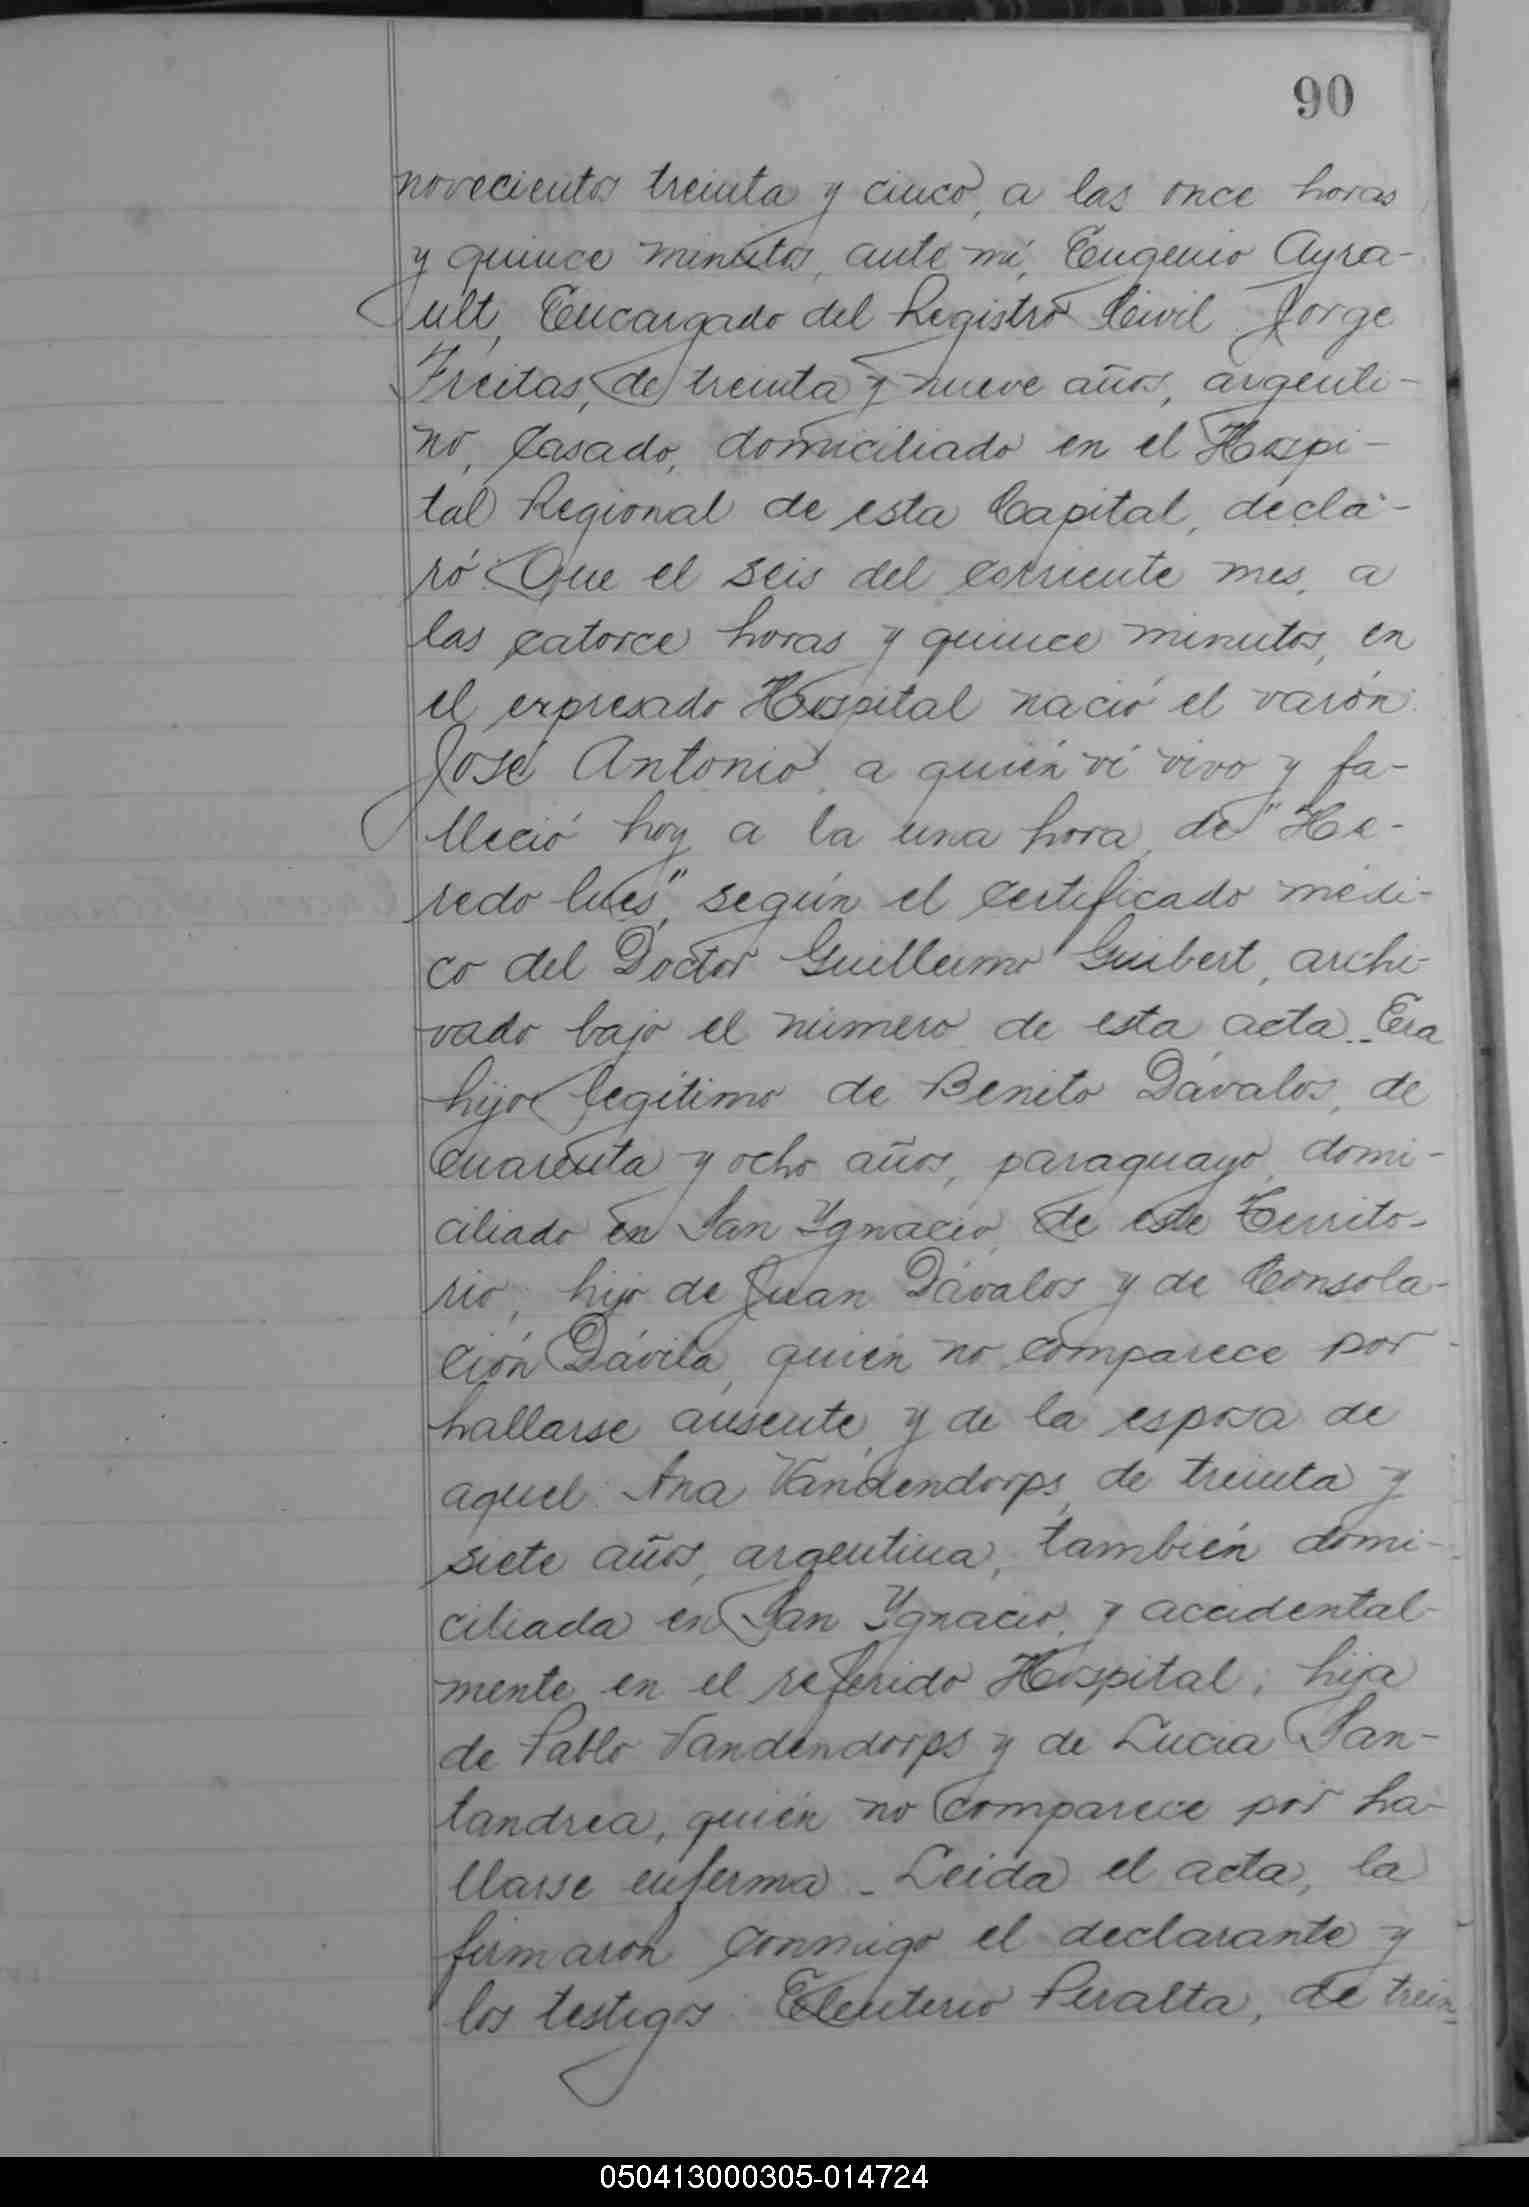 90
novecientos treinta y cinco, a las once horas
y quince minutos, ante mí, Eugenio Ayra-
ult, Encargado del Registro Civil Jorge
Freitas, de treinta y nueve años, argenti-
no, casado, domiciliado en el Hospi-
tal Regional de esta Capital, decla-
ró: Que el seis del corriente mes, a
las catorce horas y quince minutos, en
el expresado Hospital nació el varón:
José Antonio, a quién ví vivo y fa-
lleció hoy a la una hora, de "He-
redo lues", según el certificado médi-
co del Doctor Guillermo Guibert, archi-
vado bajo el número de esta acta.- Era
hijo legítimo de Benito Dávalos, de
cuarenta y ocho años, paraguayo, domi-
ciliado en San Ygnacio, de este Territo-
rio, hijo de Juan Dávalos y de Consola-
ción Dávila, quién no comparece por
hallarse ausente, y de la esposa de
aquel: Ana Vandendorps, de treinta y
siete años, argentina, también domi-
ciliada en San Ygnacio, y accidental-
mente en el referido Hospital; hija
de Pablo Vandendorps y de Lucia San-
tandrea, quién no comparece por ha-
llarse enferma - Leida el acta, la
firmaron conmigo el declarante y
los testigos: Eleuterio Peralta, de trein-
050413000305-014724